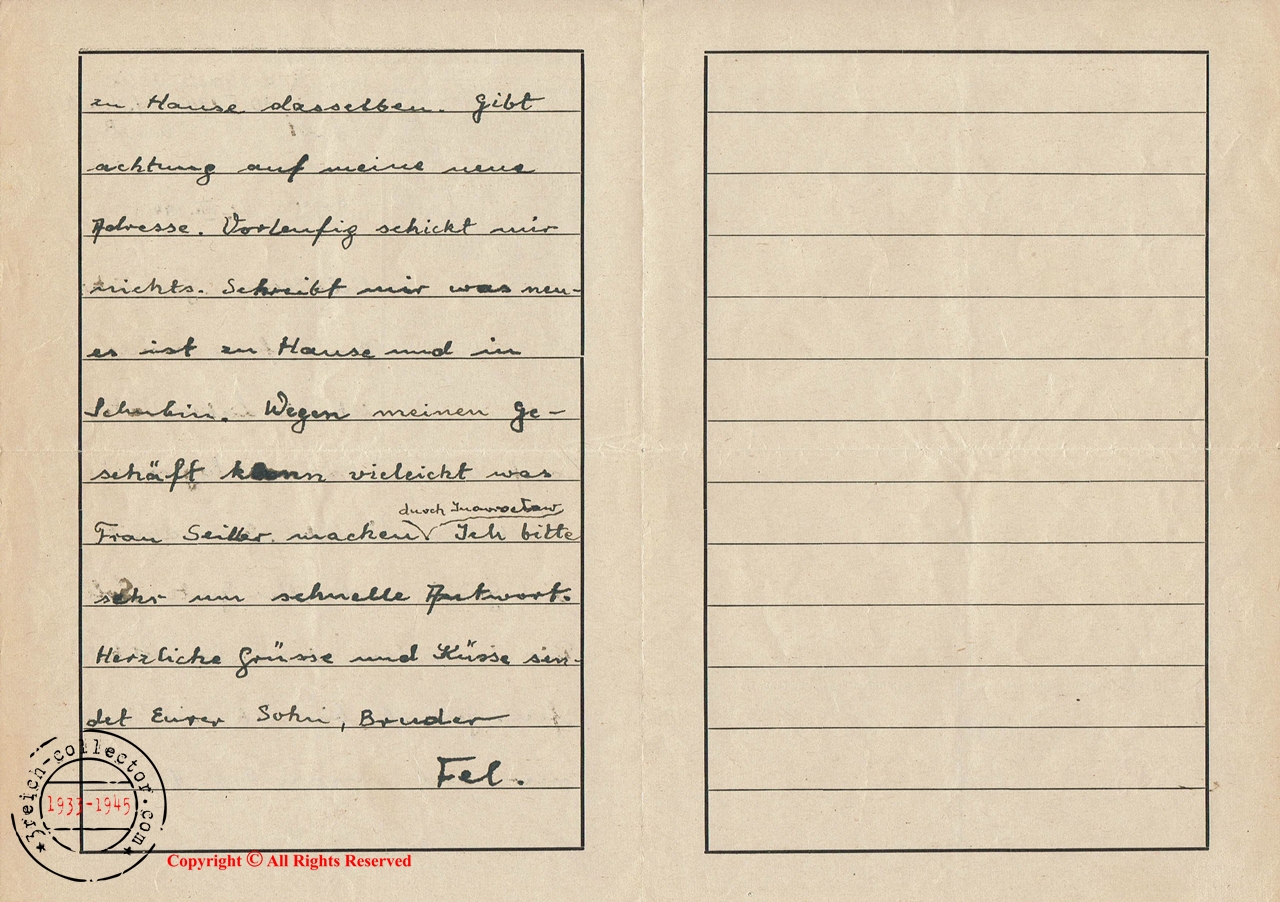 zu Hause dasselben. Gibt
achtung auf meine neue
Adresse. Vorleufig schickt mir
nichts. Schreibt mir was neu-
es ist zu Hause und in
Schubin. Wegen meinen Ge-
schäft kann vieleickt was
durch Inowrocław
Frau Seiller macken Ich bitte
sehr um schnelle Antwort.
Herzlicke Grüsse und Küsse sen-
det Eurer Sohn, Bruder
Fel.
3reich-collector.com
1933-1945
Copyright © All Rights Reserved